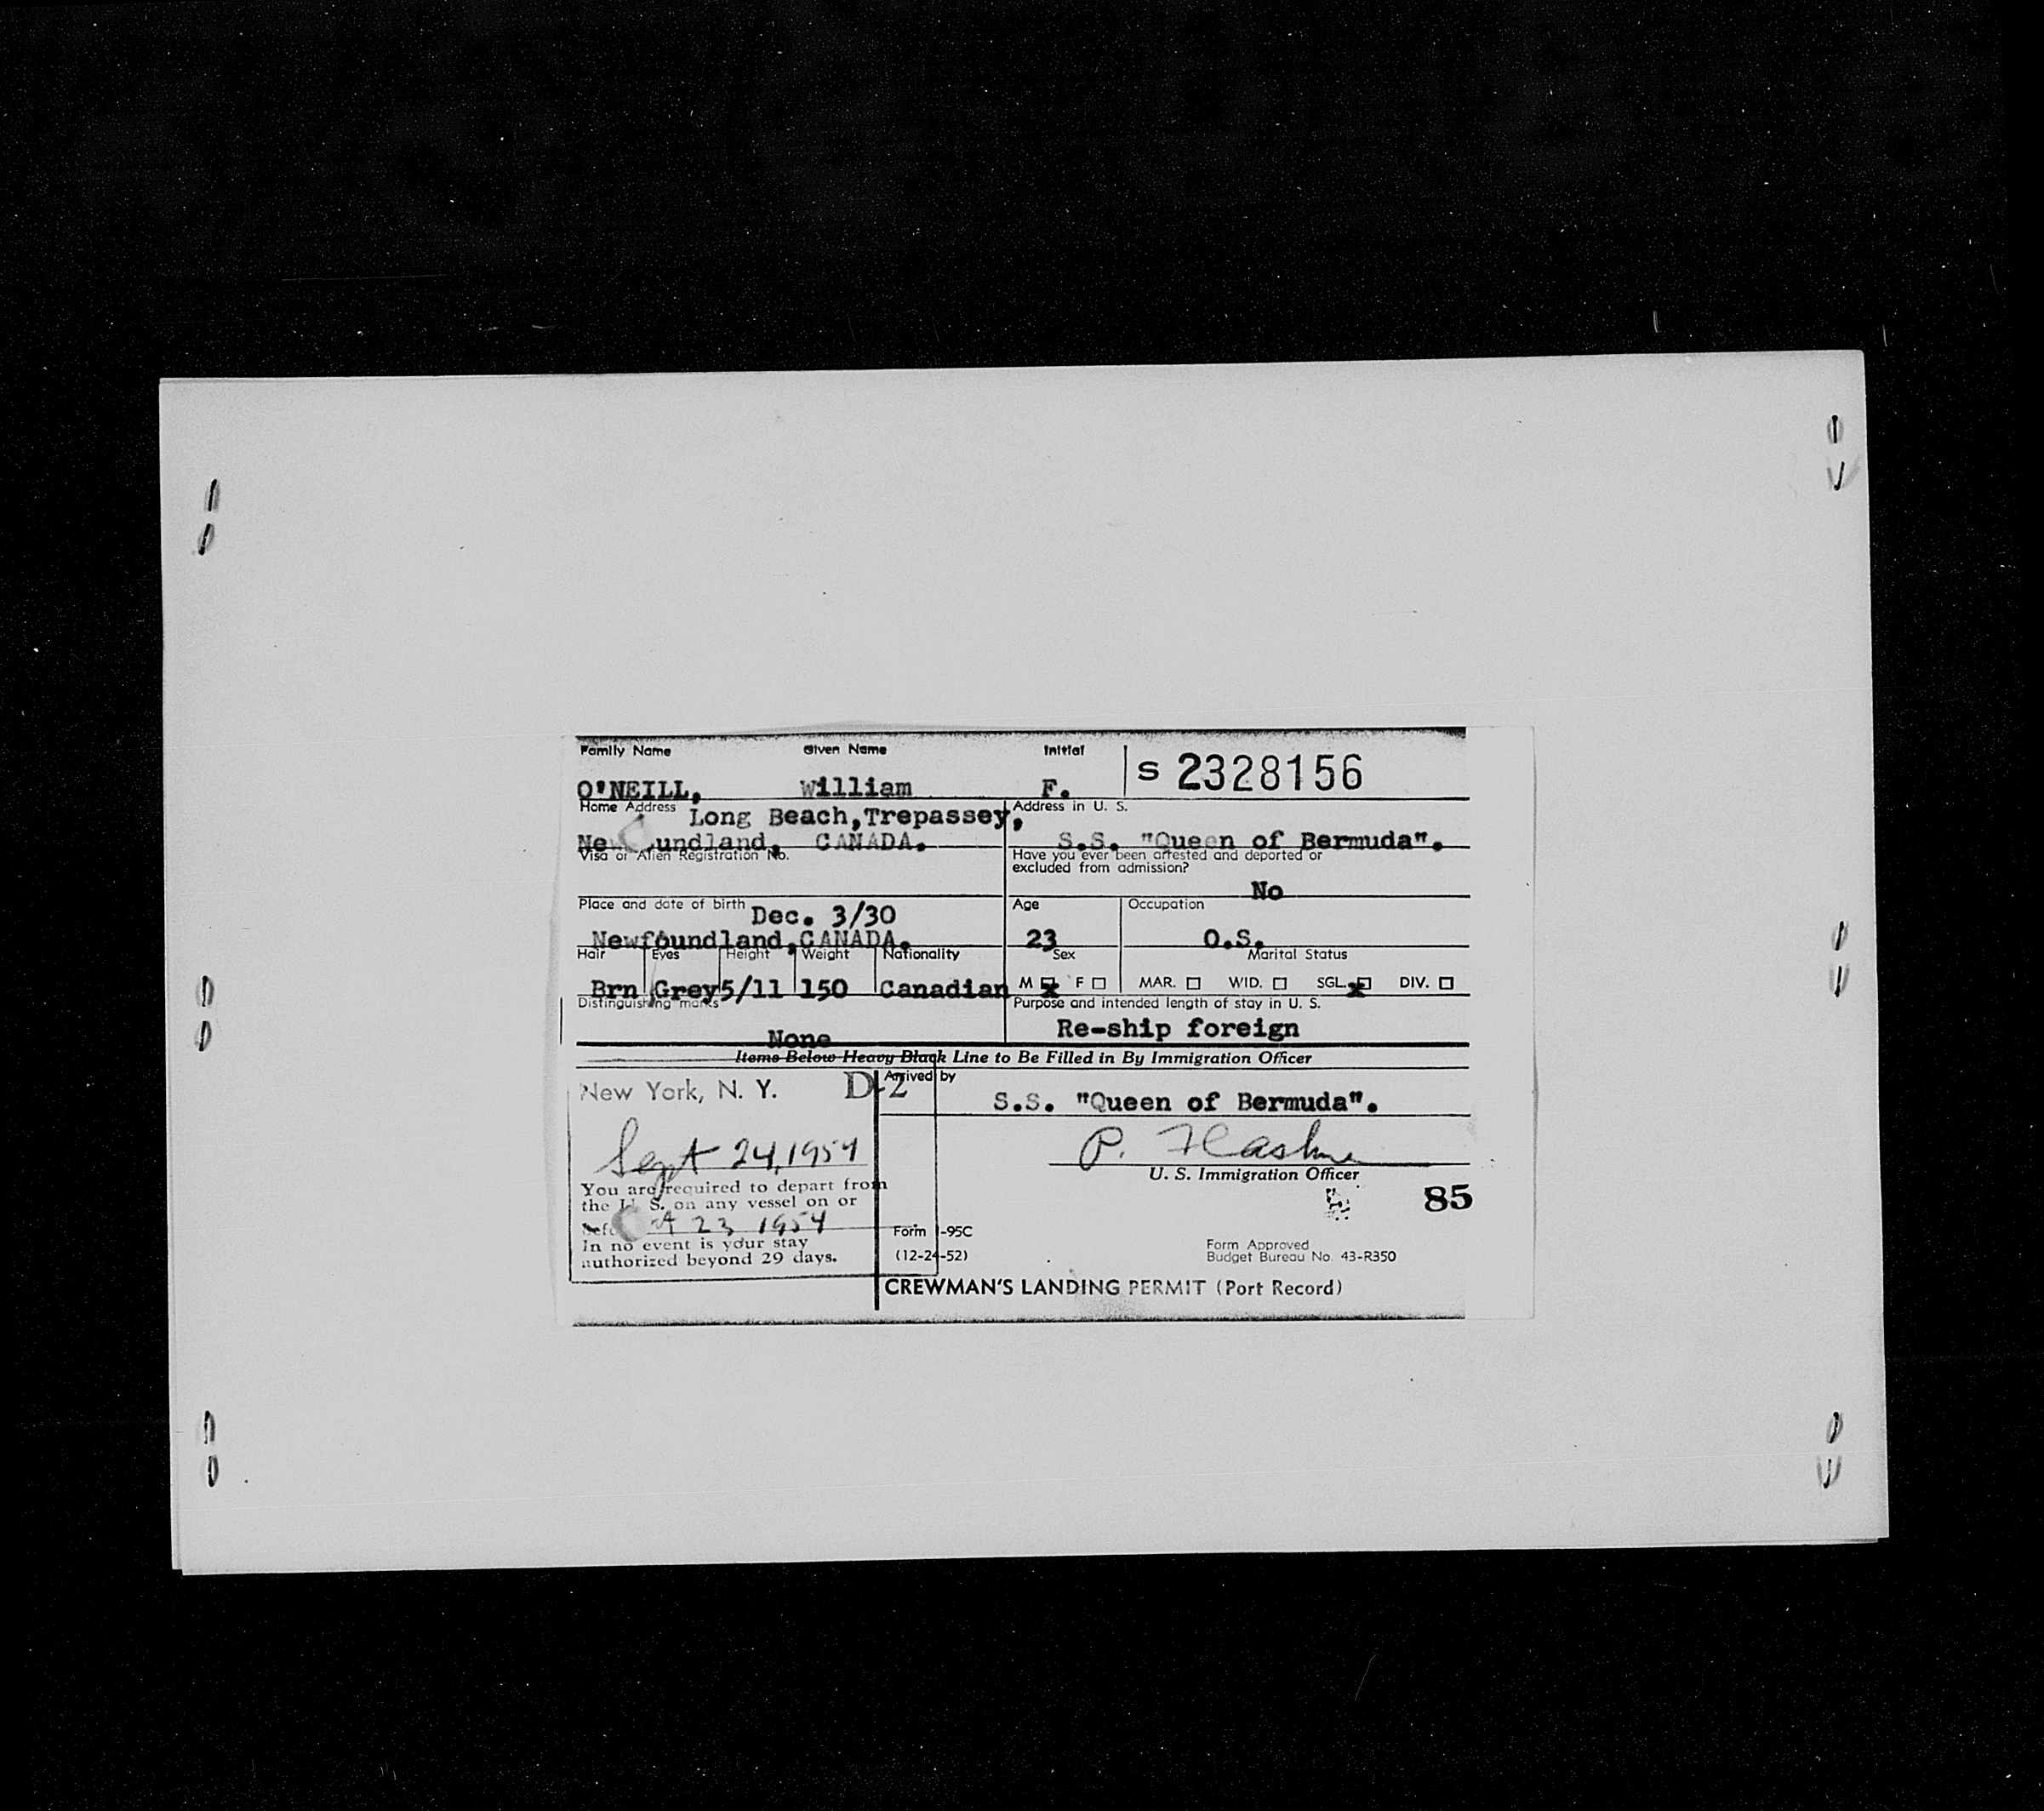 Family Name Given Name Initial
O'NEILL, William F. S 2328156
Home Address Long Beach, Trepassey,
CANADA.
Address in U. S.
S.S. "Queen of Bermuda".
Visa or Alien Registration No.
Have you ever been arrested and deported or
excluded from admission?
No
Place and date of birth Dec. 3/30
Newfoundland, CANADA.
Age
23
Occupation
O.S.
Hair Eyes Height Weight Nationality
Brn Grey 5/11 150 Canadian
Sex
M F
Marital Status
MAR. WID. SGL. DIV.
Distinguishing marks
None
Purpose and intended length of stay in U. S.
Re-ship foreign
Items Below Heavy Black Line to Be Filled in By Immigration Officer
New York, N. Y. D-2
Sept 24, 1954
You are required to depart from
the U. S. on any vessel on or
23 1954
In no event is your stay
authorized beyond 29 days.
Arrived by
S.S. "Queen of Bermuda".
P.
U. S. Immigration Officer
85
Form I-95C
(12-24-52)
Form Approved
Budget Bureau No. 43-R350
CREWMAN'S LANDING PERMIT (Port Record)